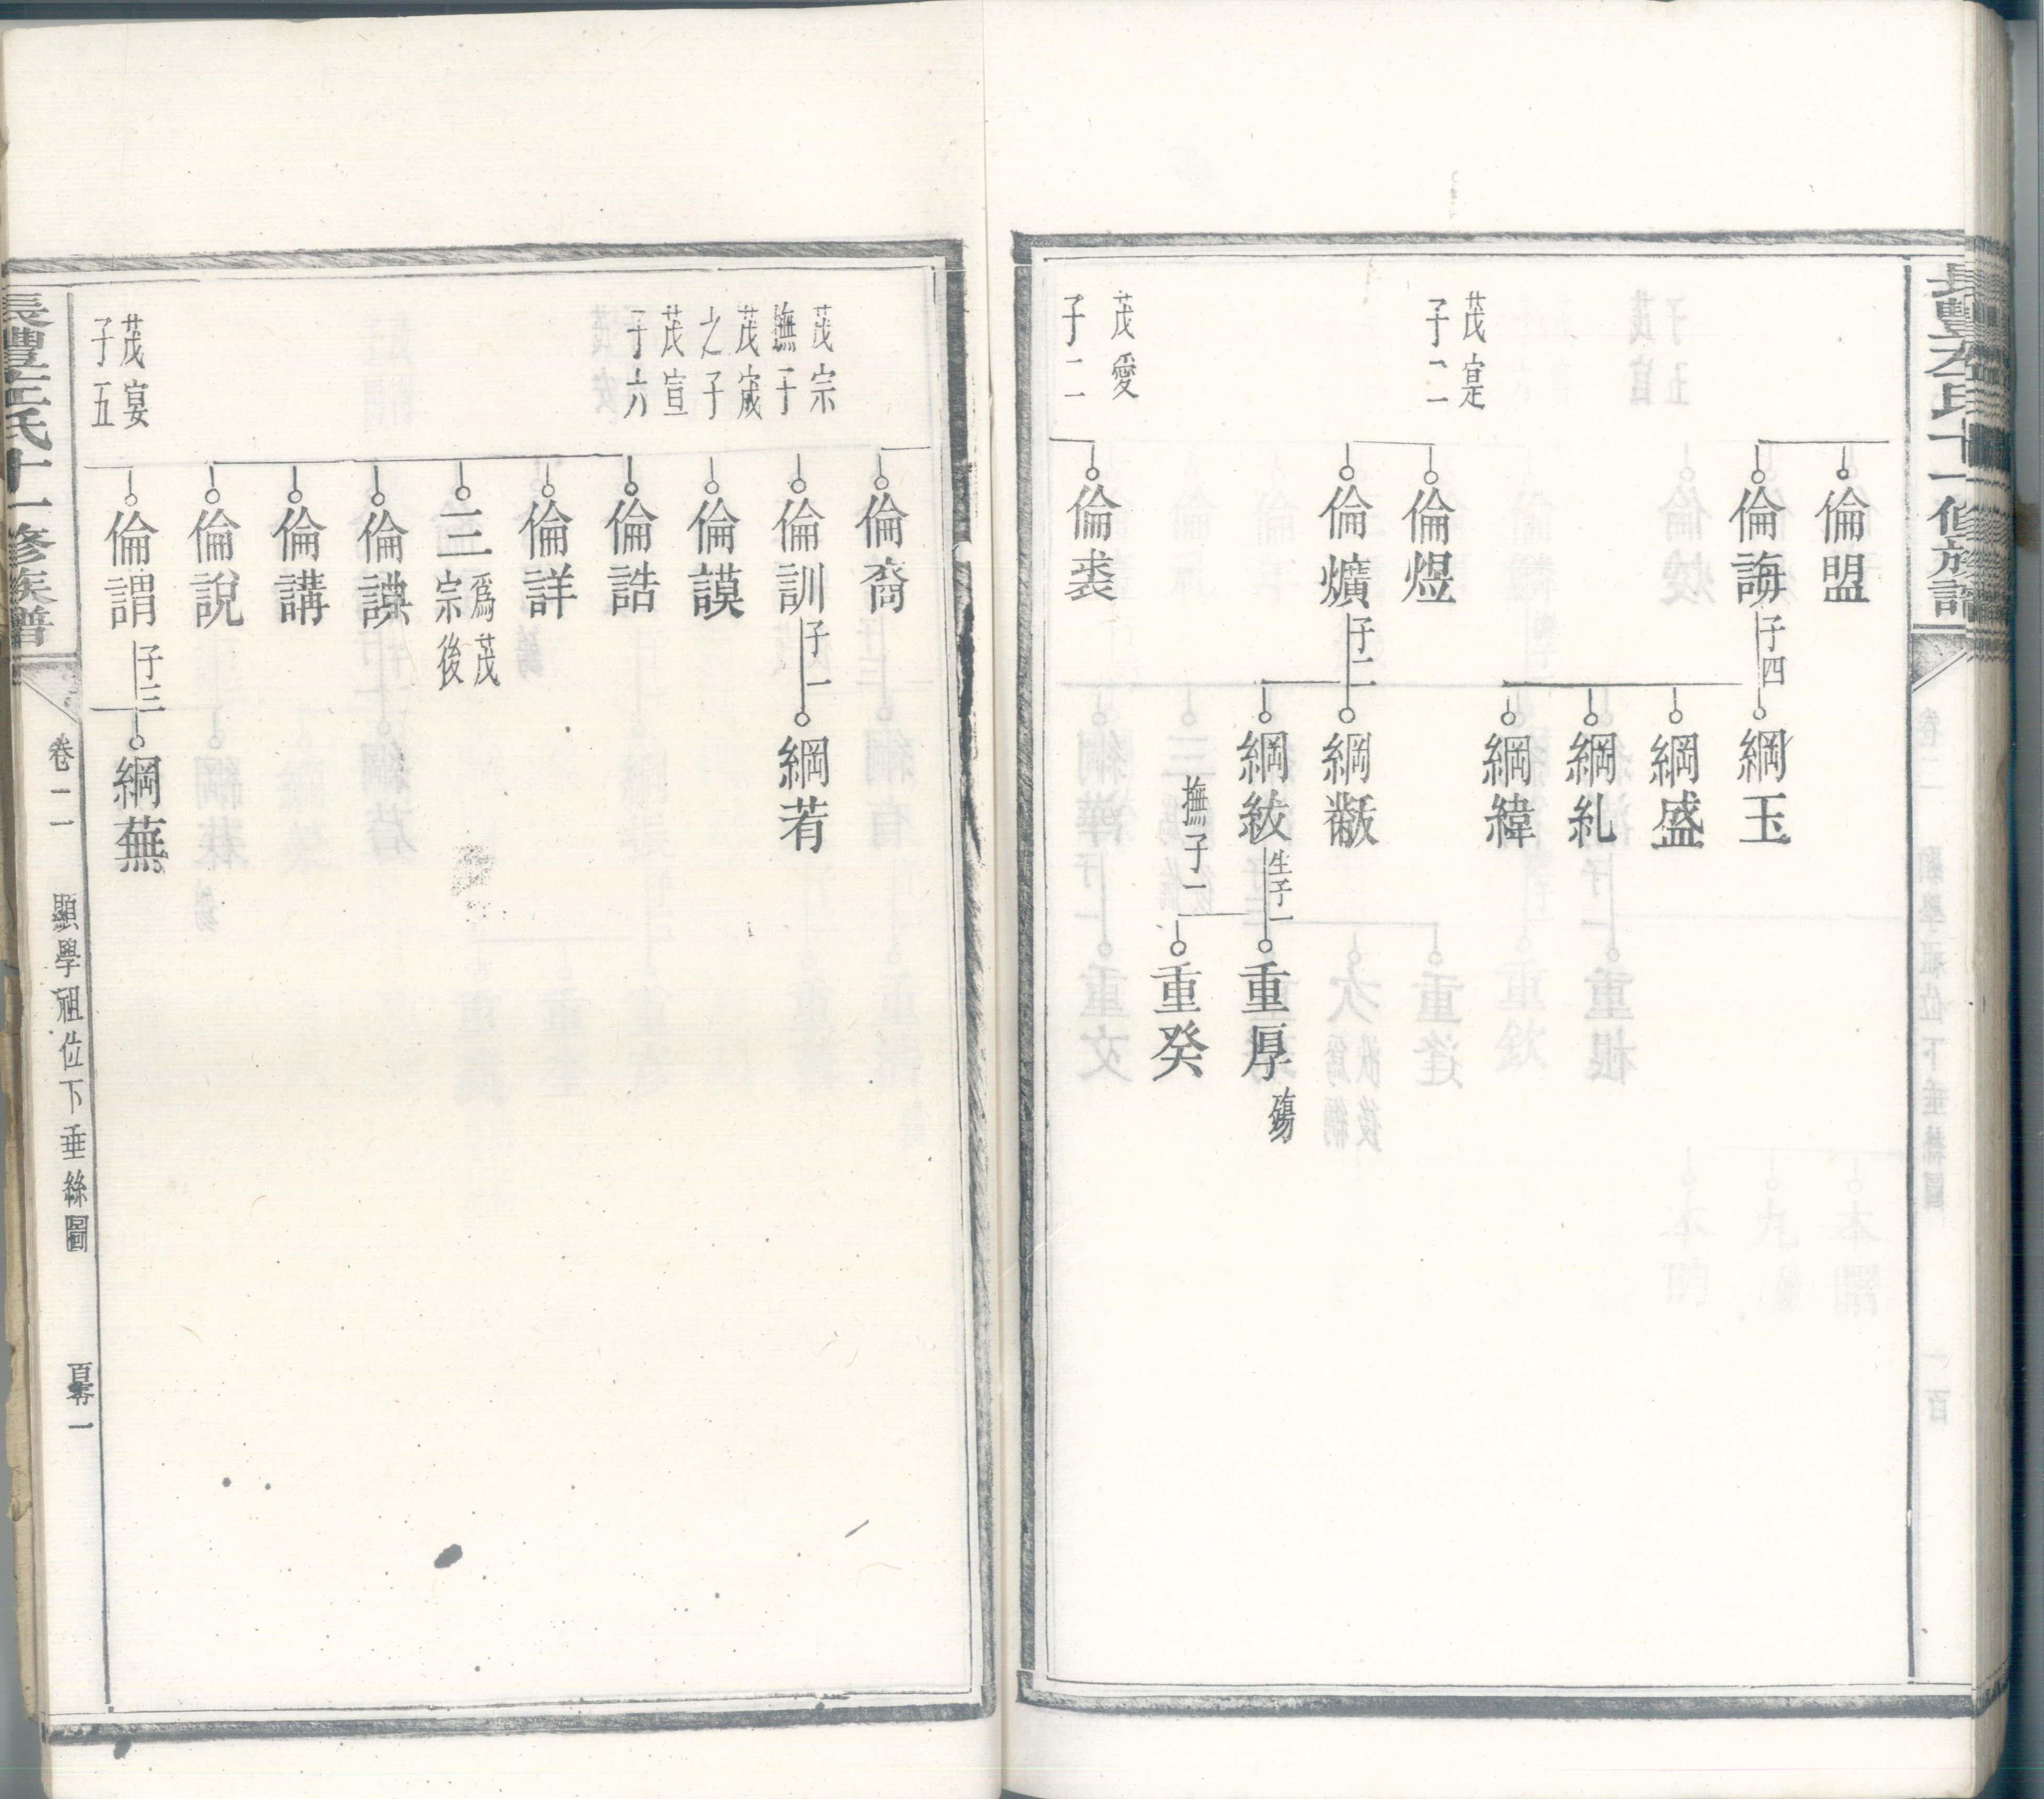 長豐左氏十一修族譜
倫盟
倫誨
子四
綱玉
綱盛
綱糺
綱緯
茂寔
子二
倫煜
倫爌
子二
綱黻
綱紱
生子一
撫子一
重厚
殤
重癸
茂愛
子二
倫裘
倫裔
茂宗
撫子
倫訓
子一
綱若
茂宬
之子
倫謨
茂宣
子六
倫誥
倫詳
三
爲茂
宗後
倫諆
倫講
倫說
茂宴
子五
倫謂
子三
綱蕪
長豐左氏十一修族譜
卷二
顯學祖位下垂絲圖
百零一